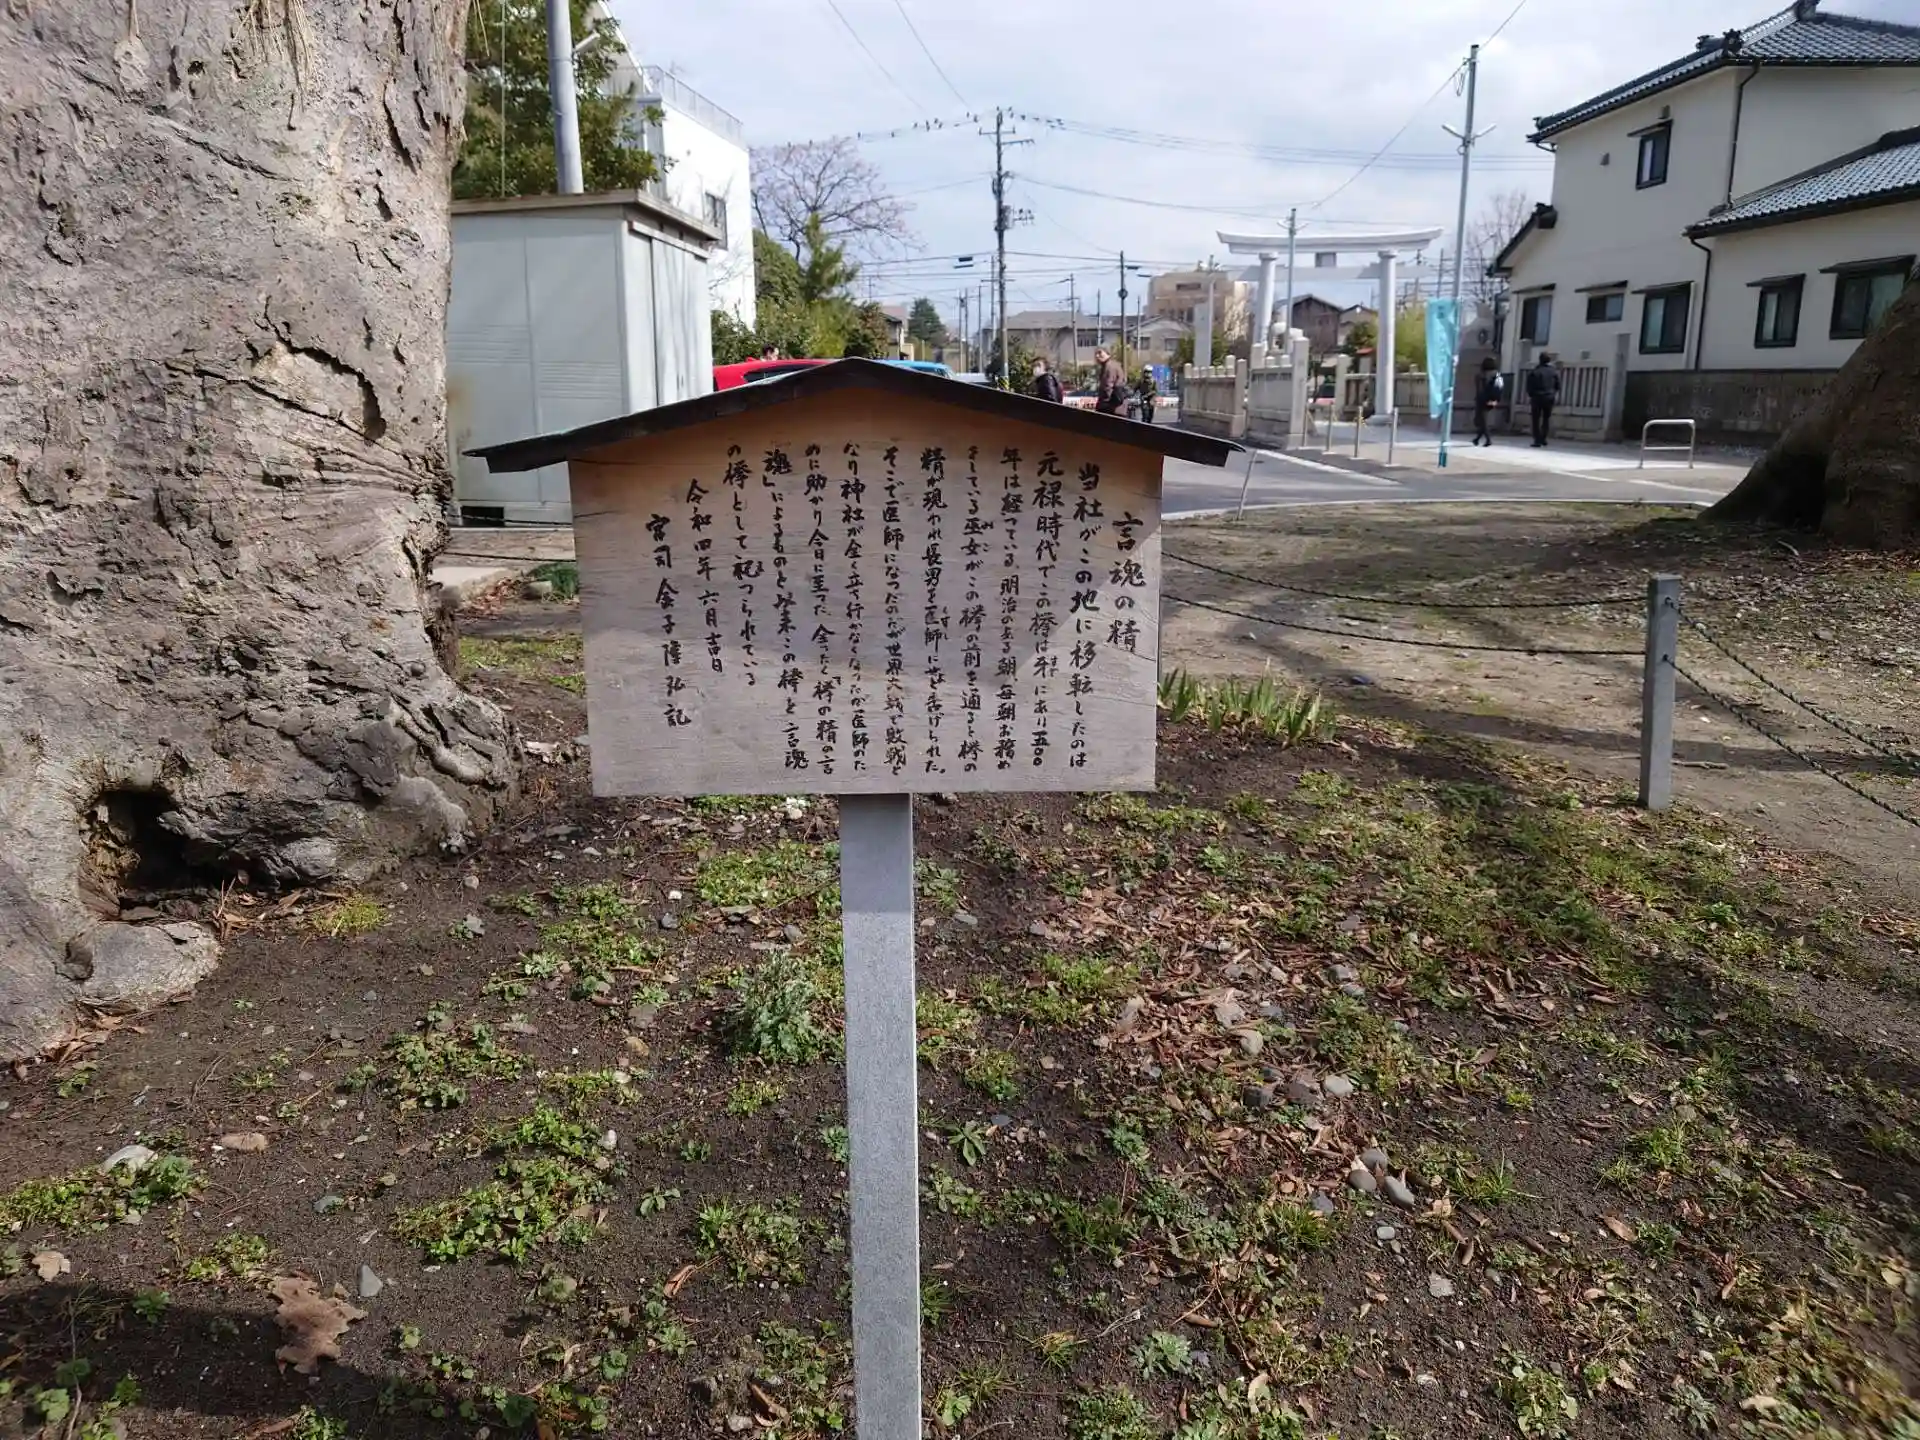 言魂の精
当社がこの地に移転したのは
元禄時代でこの欅は既にあり五〇〇
年は経っている 明治のある朝、毎朝お務め
をしている巫女がこの欅の前を通ると欅の
精が現われ長男を医師にせよと告げられた。
そこで医師になったのだが世界大戦で敗戦と
なり神社が全く立ち行かなくなったが医師のた
めに助かり今日に至った 全ったく欅の精の言
魂」によるものと以来この欅を言魂
の欅として祀つられている
令和四年 六月吉日
宮司 金子隆弘 記